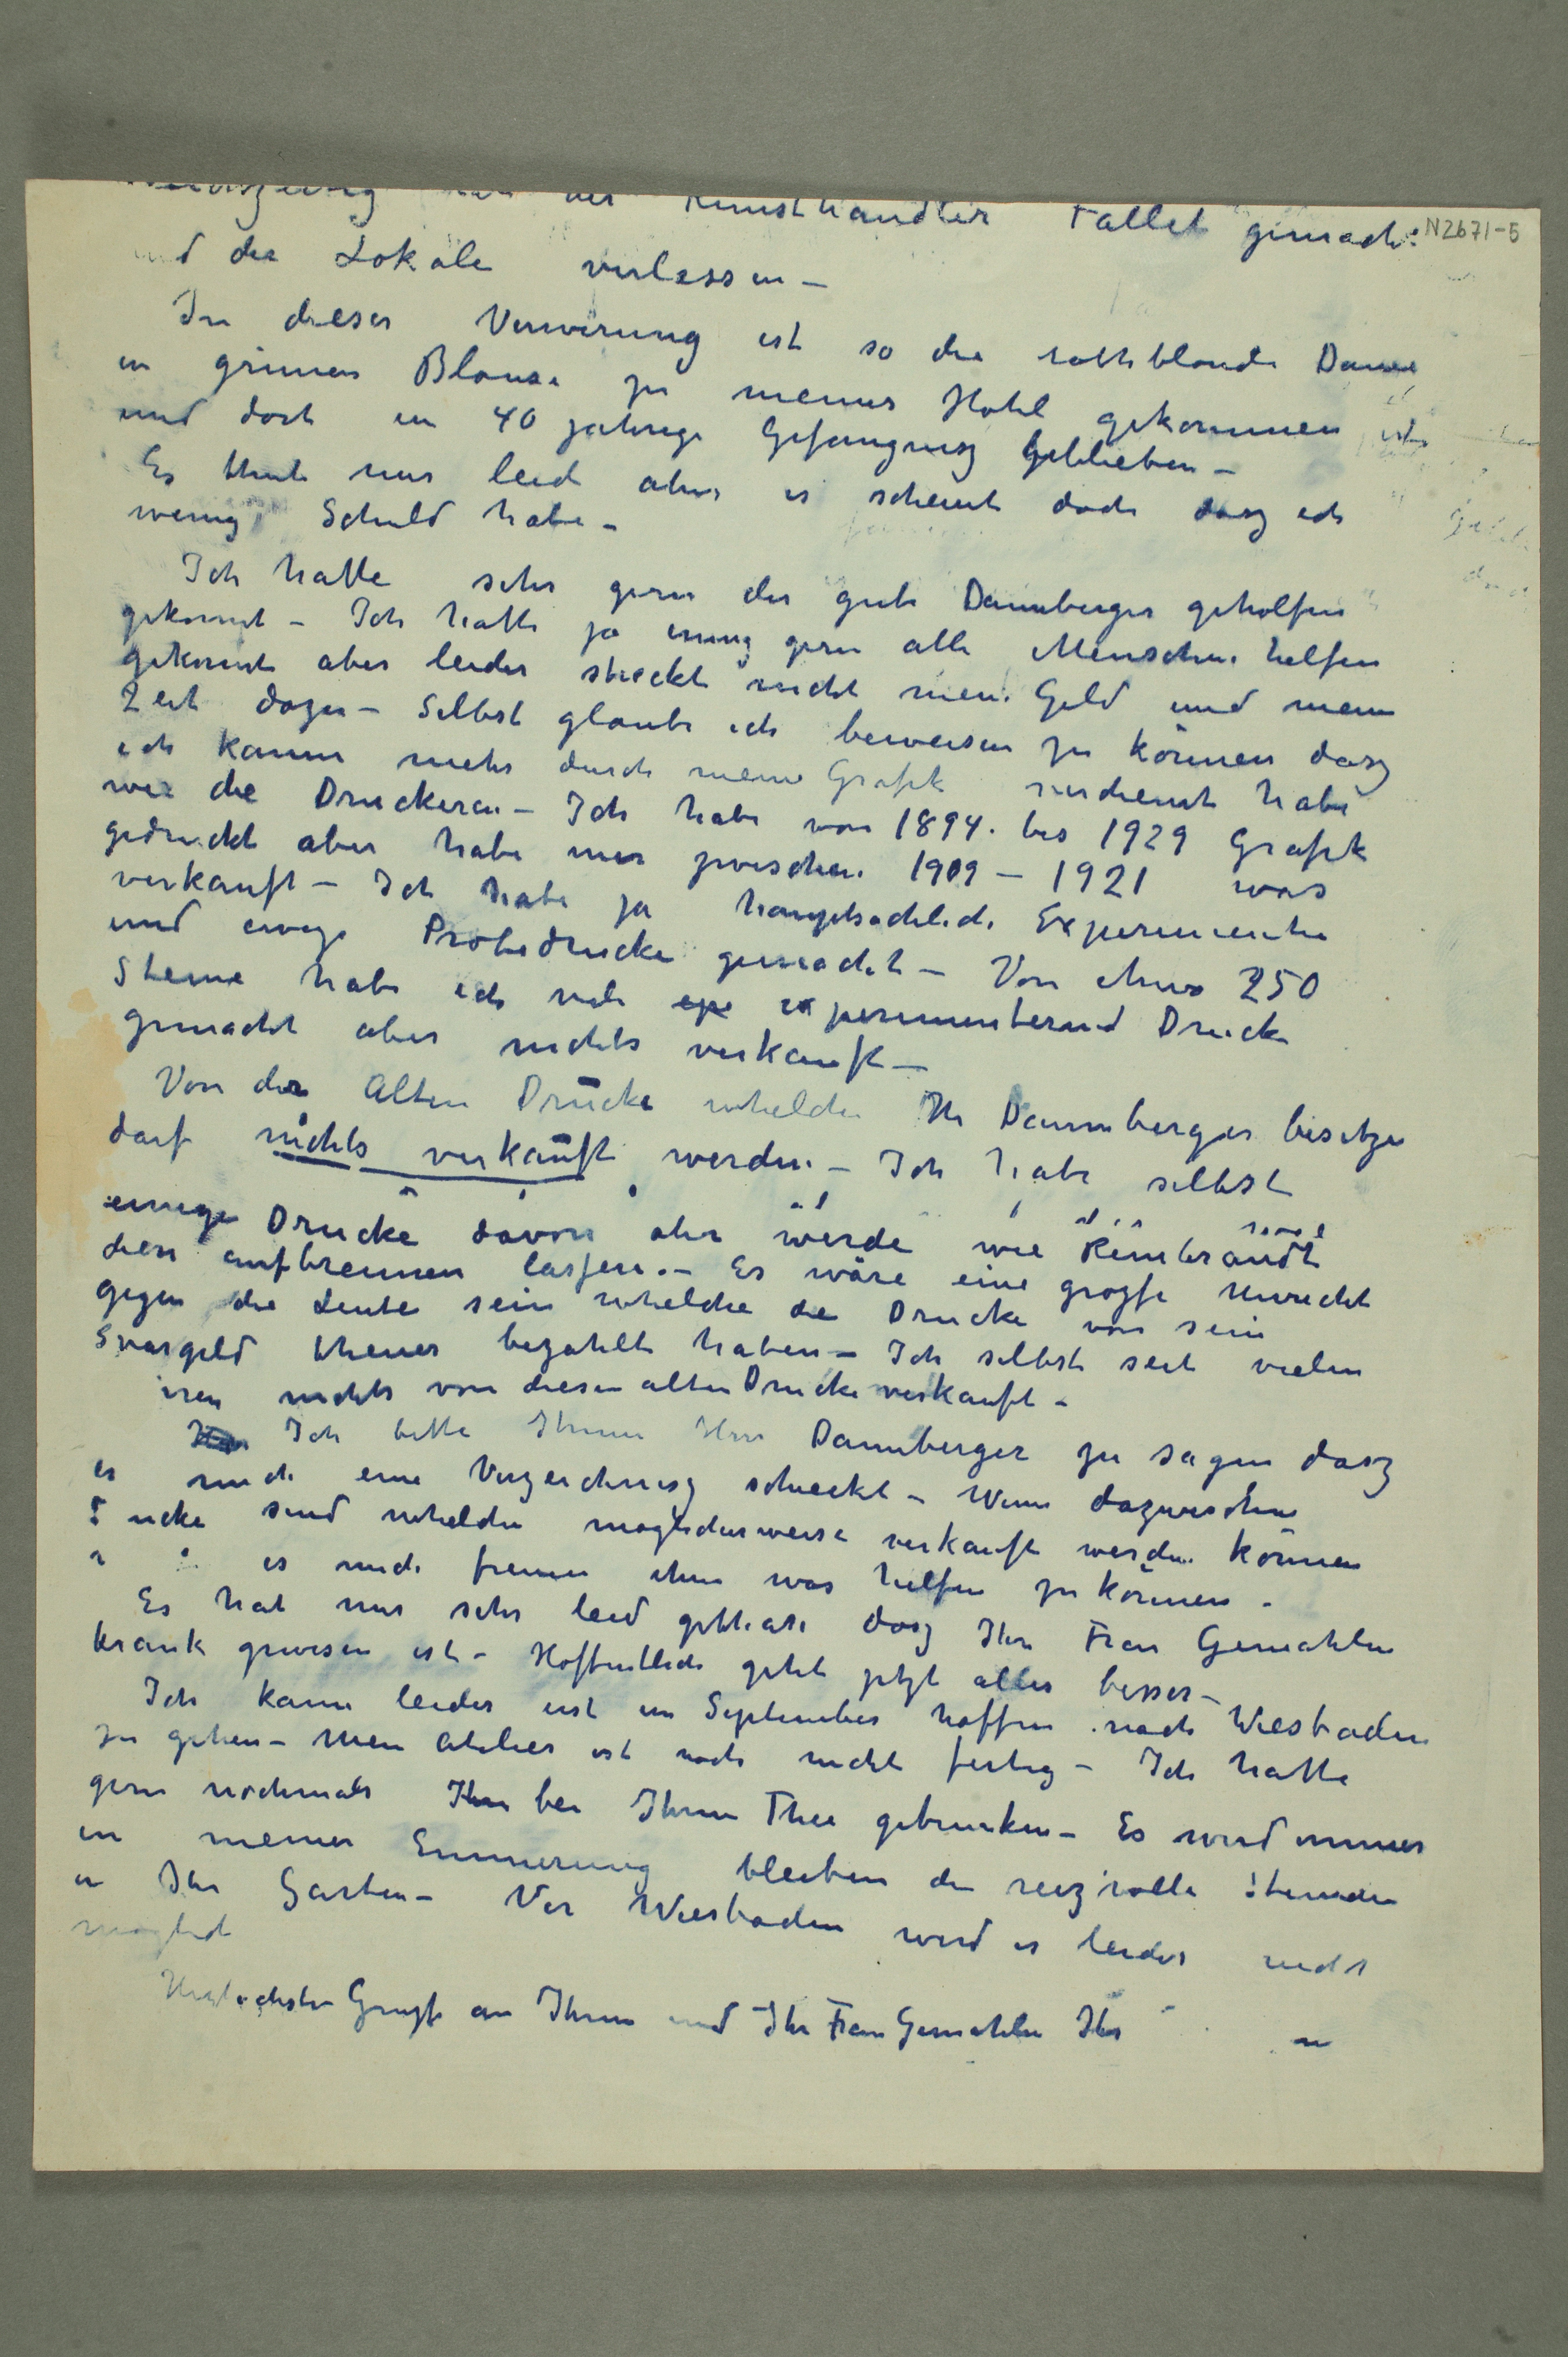 der Kunsthandler Fallet gemacht
N2671-5
und die Lokale verlassen –
In dieser Verwirung ist so die rothblonde Dame
in grüner Blouse zu meiner Hotel gekommen ist
und dort in 40 jahrige Gefangnisz geblieben –
Es thut mir leid aber es scheint doch dasz ich
wenig Schuld habe –
Ich hatte sehr gern der gute Dannberger geholfen
gekonnt – Ich hatte ja immer gern alle Menschen helfen
gekonnt aber leider streckt nicht mein Geld und meine
Zeit dazu – Selbst glaube ich beweisen zu können dasz
ich kaum mehr durch meine Grafik verdient habe
wie die Druckeren – Ich habe von 1894. bis 1929 Grafik
gedruckt aber habe nur zwischen 1909 – 1921 was
verkauft – Ich habe ja hauptsachlich Experimente
und einige Probedrucke gemacht – Von etwa 250
Steine habe ich viele epe experimenterend Drucke
gemacht aber nichts verkauft –
Von der Alten Drucke whelche Hr Dannberger besitze
darf nichts verkauft werden – Ich habe selbst
einige Drucke davon aber werde wie Rembrandt
den aufbrennen lassen. – Es wäre eine grosse Unrecht
gegen die Leute sein whelche die Drucke von sein
Svargeld theuer bezahlt haben – Ich selbst seit vielen
nichts von diesen alten Drucke verkauft –
Ich bitte Ihnen Herr Dannberger zu sagen dasz
er mich eine Verzeichnisz schickt – Wenn dazwischen
sind whelche moglicherweise verkauft werden können
es mich freuen ihm was helfen zu können –
Es hat mir sehr leid gethan dasz Ihre Frau Gemahlin
krank gewesen ist – Hoffentlich geht jetzt alles besser –
Ich kann leider erst im September hoffen nach Wiesbaden
zu gehen – Mein Atelier ist noch nicht fertig – Ich hatte
gern nochmals Ihn bei Ihnen Thee getrunken – Es wird immer
in meiner Erinnerung bleiben die reizvolle Stunden
in Ihr Garten – Vor Wiesbaden wird es leider nicht
moglich
Herzlichste Grusse an Ihnen und Ihr Frau Gemahlin Ihr